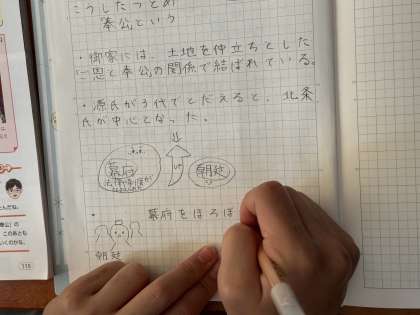 こうしたつとめ
奉公という
・御家には、土地を仲立ちとした
恩と奉公の関係で結ばれている。
・源氏が3代でとだえると、北条
氏が中心となった。
幕府
朝廷
・
幕府をほろぼ
朝廷
116